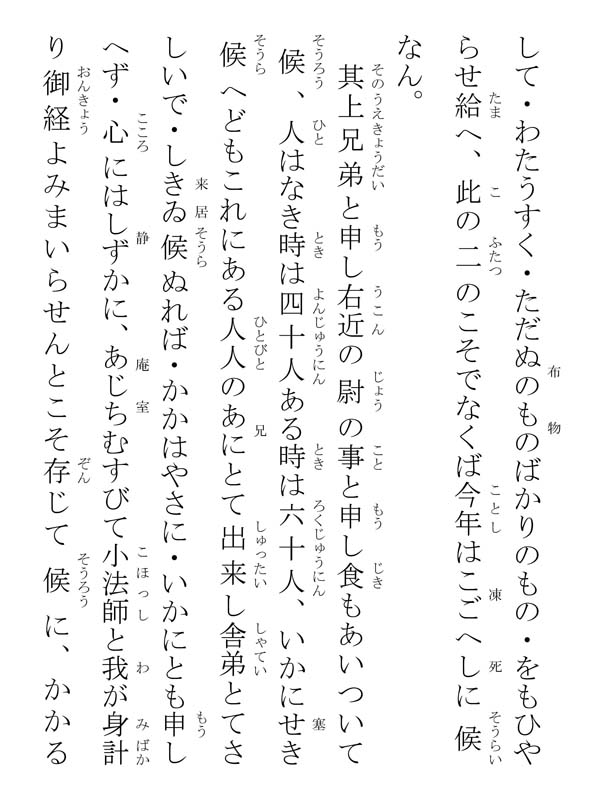 して・わたうすく・ただぬのものばかりのもの・をもひや
らせ給へ、此の二のこそでなくば今年はこごへしに候
なん。
其上兄弟と申し右近の尉の事と申し食もあいついて
候、人はなき時は四十人ある時は六十人、いかにせき
候へどもこれにある人人のあにとて出来し舎弟とてさ
しいで・しきゐ候ぬれば・かかはやさに・いかにとも申し
へず・心にはしずかに、あじちむすびて小法師と我が身計
り御経よみまいらせんとこそ存じて候に、かかる